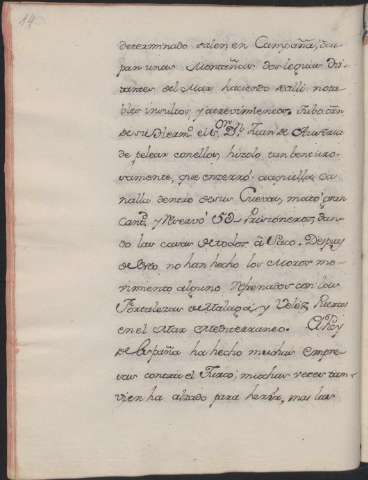 14
determinado salen en Campaña, ocu
pan unas Montañas dos leguas dis
tantes del Mar haciendo dalli nota
bles insultos y atrevimientos. Tubo orñ
de su Hermº. el Sºr. Dⁿ. Juan de Austria
de pelear conellos, hizolo tan bentura
vamente, que enzerró aaquella ca
nalla dentro de sus Cuevas, mató gran
Cantᵈ. y Reservó 50 Prissioneros, dan
do las casas de todos â Saco. Despues
de Esto, no han hecho los Moros mo
vimiento alguno Refrenados con las
Fortalezas de Malaga, y Velez, Puertos
en el Mar Mediterraneo. El Rey
de España ha hecho muchas empre
sas contra el Turco, muchas veces tam
vien ha alzado para hacerla, mas las